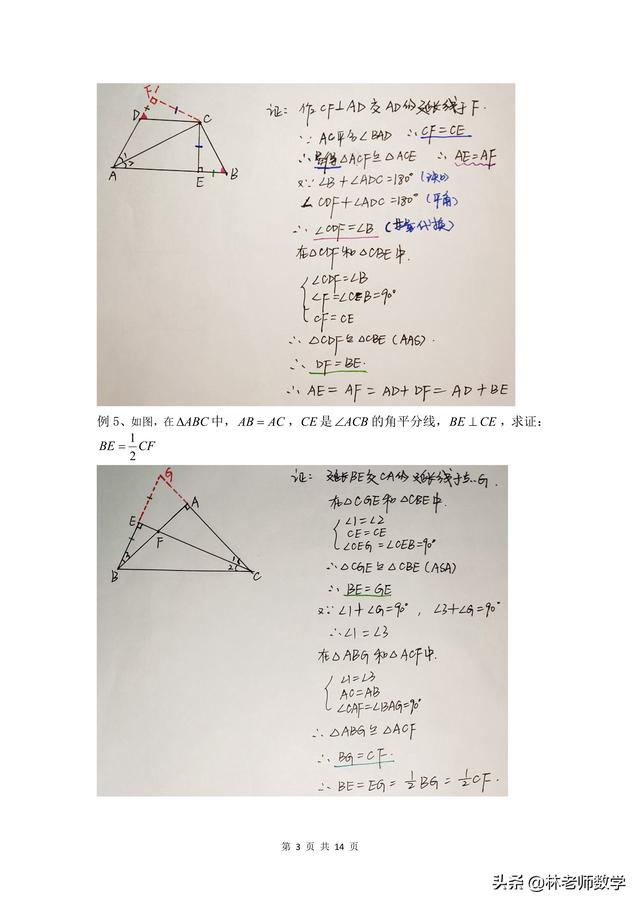 证: 作CF⊥AD交AD的延长线于F.
∵ AC平分∠BAD ∴ CF=CE
∴ 易得△ACF≌△ACE ∴ AE=AF
又∵ ∠B+∠ADC=180° (已知)
∠CDF+∠ADC=180° (平角)
∴ ∠CDF=∠B (等量代换)
在△CDF和△CBE中.
∠CDF=∠B
∠F=∠CEB=90°
CF=CE
∴ △CDF≌△CBE (AAS).
∴ DF=BE.
∴ AE=AF=AD+DF=AD+BE
F
D
C
1
2
A
E
B
例 5、如图, 在ΔABC中, AB = AC , CE是∠ACB的角平分线, BE⊥CE , 求证:
BE = 1/2 CF
证: 延长BE交CA的延长线于点G.
在△CGE和△CBE中.
∠1=∠2
CE=CE
∠CEG=∠CEB=90°
∴ △CGE≌△CBE (ASA)
∴ BE=GE
又∵ ∠1+∠G=90° , ∠3+∠G=90°
∴ ∠1=∠3
在△ABG和△ACF中.
∠1=∠3
AC=AB
∠CAF=∠BAG=90°
∴ △ABG≌△ACF
∴ BG=CF.
∴ BE=EG=1/2BG=1/2CF.
G
A
E
F
3
1
2
B
C
第 3 页 共 14 页
头条 @林老师数学